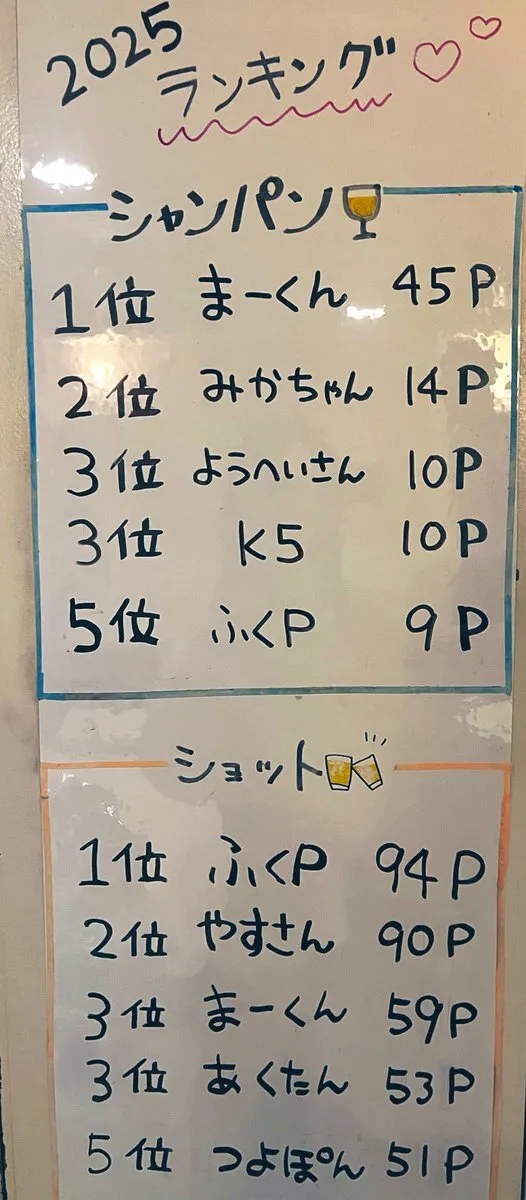 2025
ランキング
シャンパン
1位 まーくん 45P
2位 みかちゃん 14P
3位 ようへいさん 10P
3位 K5 10P
5位 ふくP 9P
ショット
1位 ふくP 94P
2位 やすさん 90P
3位 まーくん 59P
3位 あくたん 53P
5位 つよぽん 51P